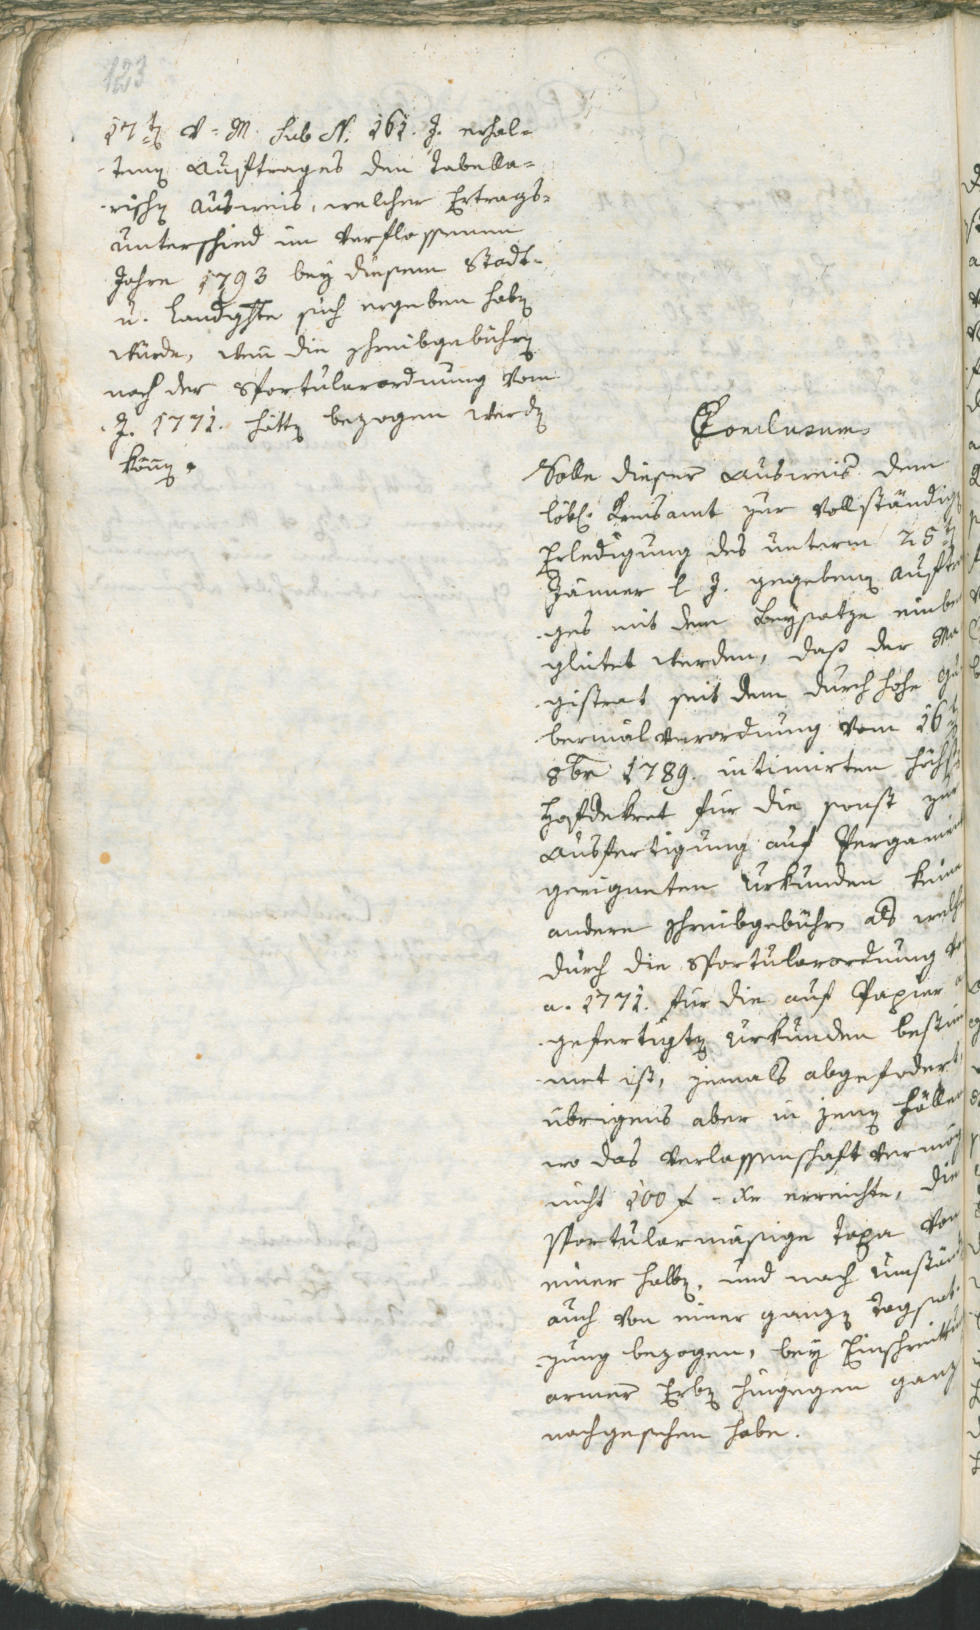 123
17t v. M. sub N. 161. J. erhal-
tenen Auftrages den Tabella-
rischen Ausweis, welcher Ertrags-
unterschied im verflossenen
Jahre 1793 bey diesem Stadt-
u. Landghte sich ergeben haben
würde, wenn die Schreibgebühren
nach der Sportularordnung vom
J. 1771. hätten bezogen werden
können.
Conclusum.
Solle dieser Ausweis dem
löbl. Kreisamt zur vollständigen
Erledigung des unterm 25t
Jänner l. J. gegebenen Auftra
ges mit dem Beysatze einbe
gleitet werden, daß der Ma
gistrat seit dem durch hohe Gu
bernial Verordnung vom 16t
8ber 1789. intimirten höchst
Hofdekret für die sonst zur
Ausfertigung auf Pergament
geeigneten Urkunden keine
andere Schreibgebühr als welche
durch die Sportularordnung de
a. 1771. für die auf Papier a
gefertigten Urkunden bestim
met ist, jemals abgefodert,
übrigens aber in jenen Fällen
wo das Verlassenschaft Vermög
nicht 100 f - xr erreichte, die
Sportularmäsige Taxa von
einer halben, und nach Umständ
auch von einer ganzen Tagsat-
zung bezogen, bey Einschreittung
armer Erben hingegen ganz
nachgesehen habe.